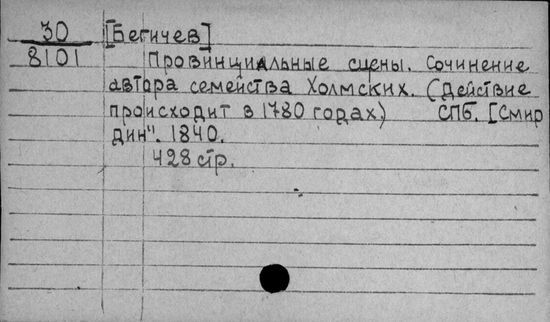 30 [Бегичев]
8101 Провинциальные сцены. Сочинение
автора семейства Холмских. (Действие
происходит в 1780 годах) СПБ. [Смир
дин". 1840.
428 стр.